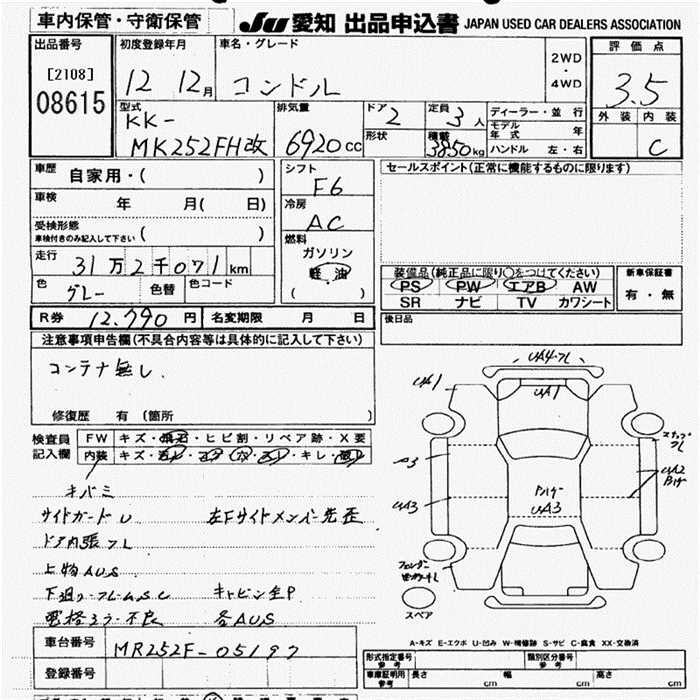 車内保管・守衛保管
JU 愛知 出品申込書 JAPAN USED CAR DEALERS ASSOCIATION
出品番号
[2108]
08615
初度登録年月
12 12月
車名・グレード
コンドル
2WD
・
4WD
評価点
3.5
外装 内装
C
型式
KK-
MK252FH改
排気量
6920cc
ドア
2
形状
定員
3人
積載
3850kg
ディーラー・並行
モデル年式 年
ハンドル 左・右
車歴
自家用・( )
車検
年 月( 日)
受検形態
車検付きのみ記入して下さい ( )
走行
31万2千071km
色
グレー
色替
色コード
シフト
F6
冷房
AC
燃料
ガソリン
軽・油
( )
セールスポイント(正常に機能するものに限ります)
装備品(純正品に限り○をつけてください)
PS PW エアB AW
SR ナビ TV カワシート
新車保証書
有・無
後日品
R券 12,790円 名変期限 月 日
注意事項申告欄(不具合内容等は具体的に記入して下さい)
コンテナ無し.
修復歴 有 (箇所 )
検査員
記入欄
FW キズ・飛石・ヒビ割・リペア跡・X要
内装
キバミ
サイドガードU 左Fサイドメンバー先歪
ドア内張フL
上物AUS
キャビン全P
各AUS
車台番号
MR252F-05197
登録番号
UA1
UA1
A3
UA3
UA2
UA3
スペア
A-キズ E-エクボ U-凹み W-補修跡 S-サビ C-腐食 XX-交換済
形式指定番号
参考
類別区分番号
参考
車庫証明用
参考
長さ cm 幅 cm 高さ cm